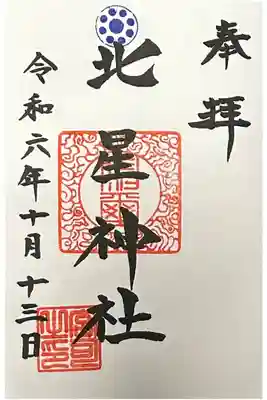 奉拝
北星神社
令和六年十月十三日